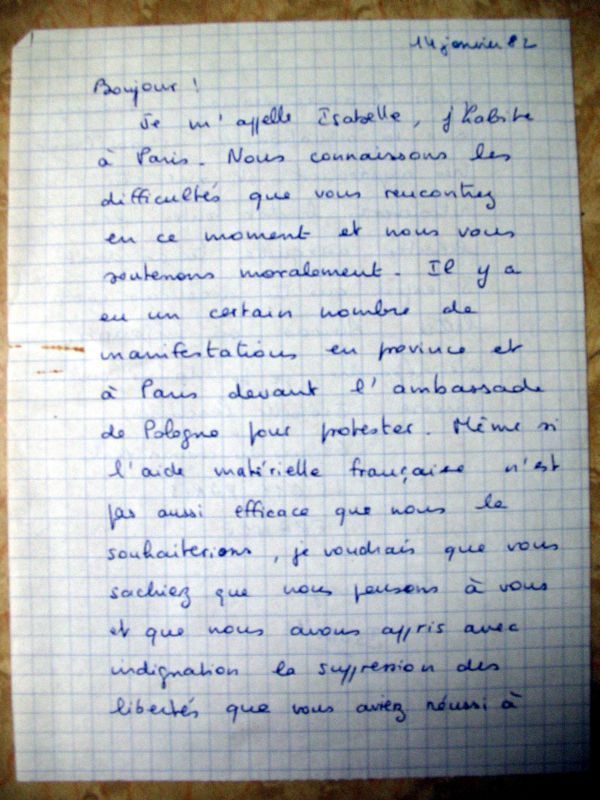 14 janvier 82
Bonjour !
Je m'appelle Isabelle, j'habite
à Paris. Nous connaissons les
difficultés que vous rencontrez
en ce moment et nous vous
soutenons moralement. Il y a
eu un certain nombre de
manifestations en province et
à Paris devant l'ambassade
de Pologne pour protester. Même si
l'aide matérielle française n'est
pas aussi efficace que nous le
souhaiterions, je voudrais que vous
sachiez que nous pensons à vous
et que nous avons appris avec
indignation la suppression des
libertés que vous aviez réussi à